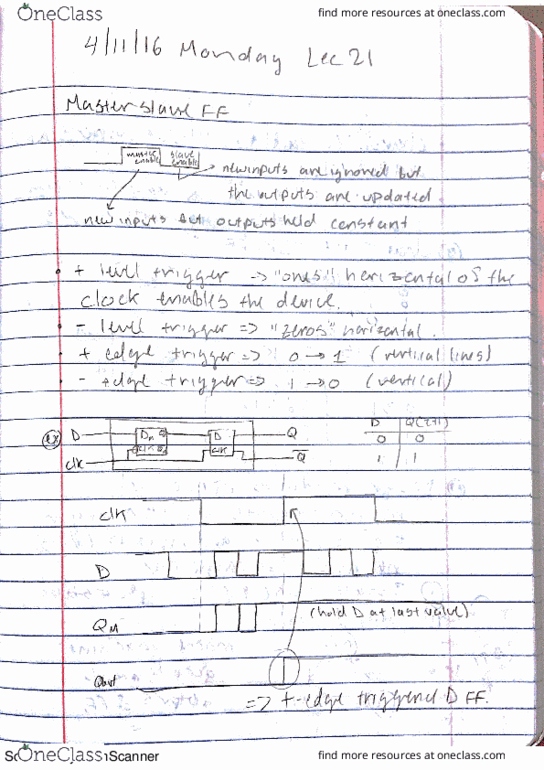 OneClass
find more resources at oneclass.com
4/11/16 Monday Lec 21
Master slave FF
master enable
slave enable
new inputs are ignored but
the outputs are updated
new inputs but outputs held constant
+ level trigger => "ones" horizontal of the
clock enables the device.
- level trigger => "zeros" horizontal.
+ edge trigger => 0 → 1 (vertical lines)
- edge trigger => 1 → 0 (vertical)
ex D D Q D Q
clk clk
Q
D Q(t+1)
0 0
1 1
clk
D
QM
(hold D at last value)
Qout
=> +-edge triggered D FF.
OneClass
Scanner
find more resources at oneclass.com